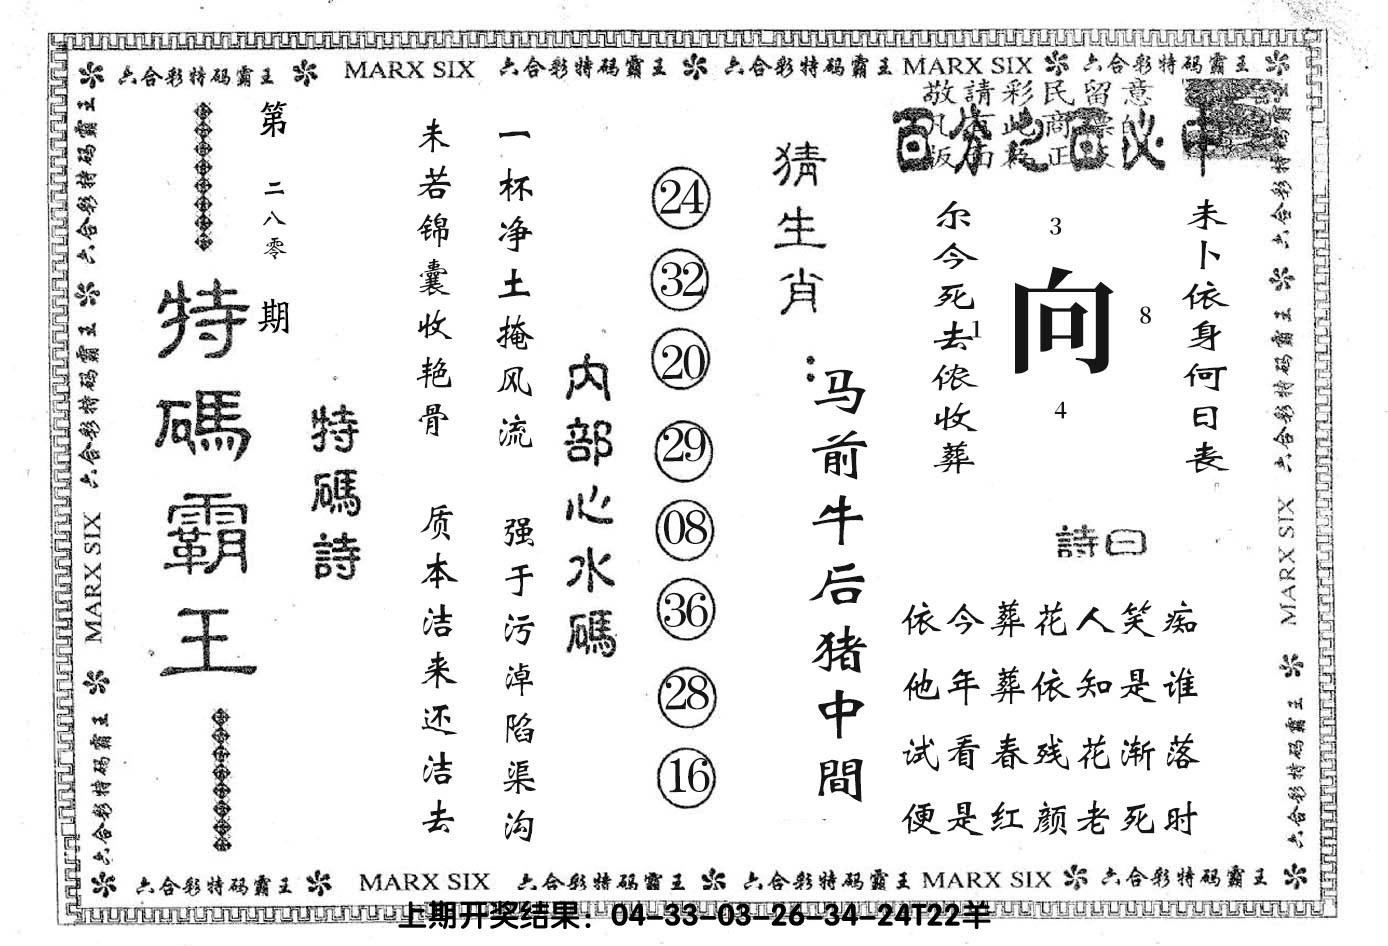 六合彩特码霸王 MARX SIX 六合彩特码霸王 六合彩特码霸王 MARX SIX 六合彩特码霸王
敬請彩民留意
百分之百必中
未卜侬身何日丧
3
向
8
1
4
尔今死去侬收葬
詩曰
依今葬花人笑痴
他年葬依知是谁
试看春残花渐落
便是红颜老死时
猜生肖：
马前牛后猪中間
24
32
20
29
08
36
28
16
内部心水碼
一杯净土掩风流 强于污淖陷渠沟
未若锦囊收艳骨 质本洁来还洁去
特碼詩
第二八零期
特碼霸王
六合彩特码霸王 六合彩特码霸王 MARX SIX 六合彩特码霸王
六合彩特码霸王 六合彩特码霸王 MARX SIX 六合彩特码霸王
六合彩特码霸王 MARX SIX 六合彩特码霸王 六合彩特码霸王 MARX SIX 六合彩特码霸王
上期开奖结果：04-33-03-26-34-24T22羊